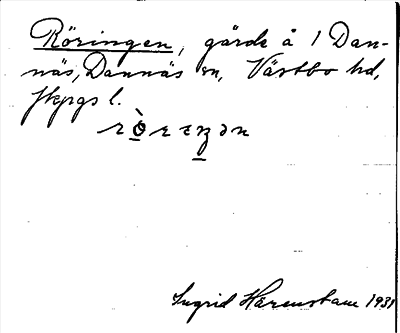 Röringen, gärde å 1 Dan-
näs, Dannäs sn, Västbo hd,
Jkpgs l.
Ingrid Härenstam 1931